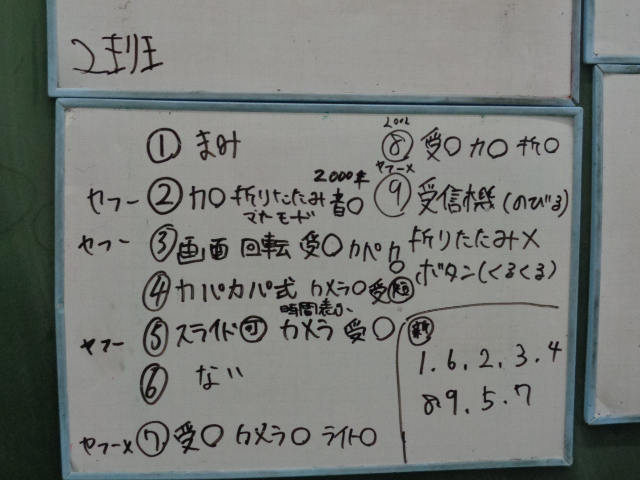 2班
① まみ
ヤフー ② カ○ 折りたたみ 音○
2000年
マナーモード
ヤフー ③ 画面 回転 受○ カパカ○
④ カパカパ式 カメラ○ 受
時間表示
ヤフー ⑤ スライド可 カメラ 受○
⑥ ない
ヤフー× ⑦ 受○ カメラ○ ライト○
2002
⑧ 受○ カ○ 折○
ヤフー×
⑨ 受信機 (のびる)
折りたたみ×
ボタン(くるくる)
新
1.6.2.3.4
8.9.5.7